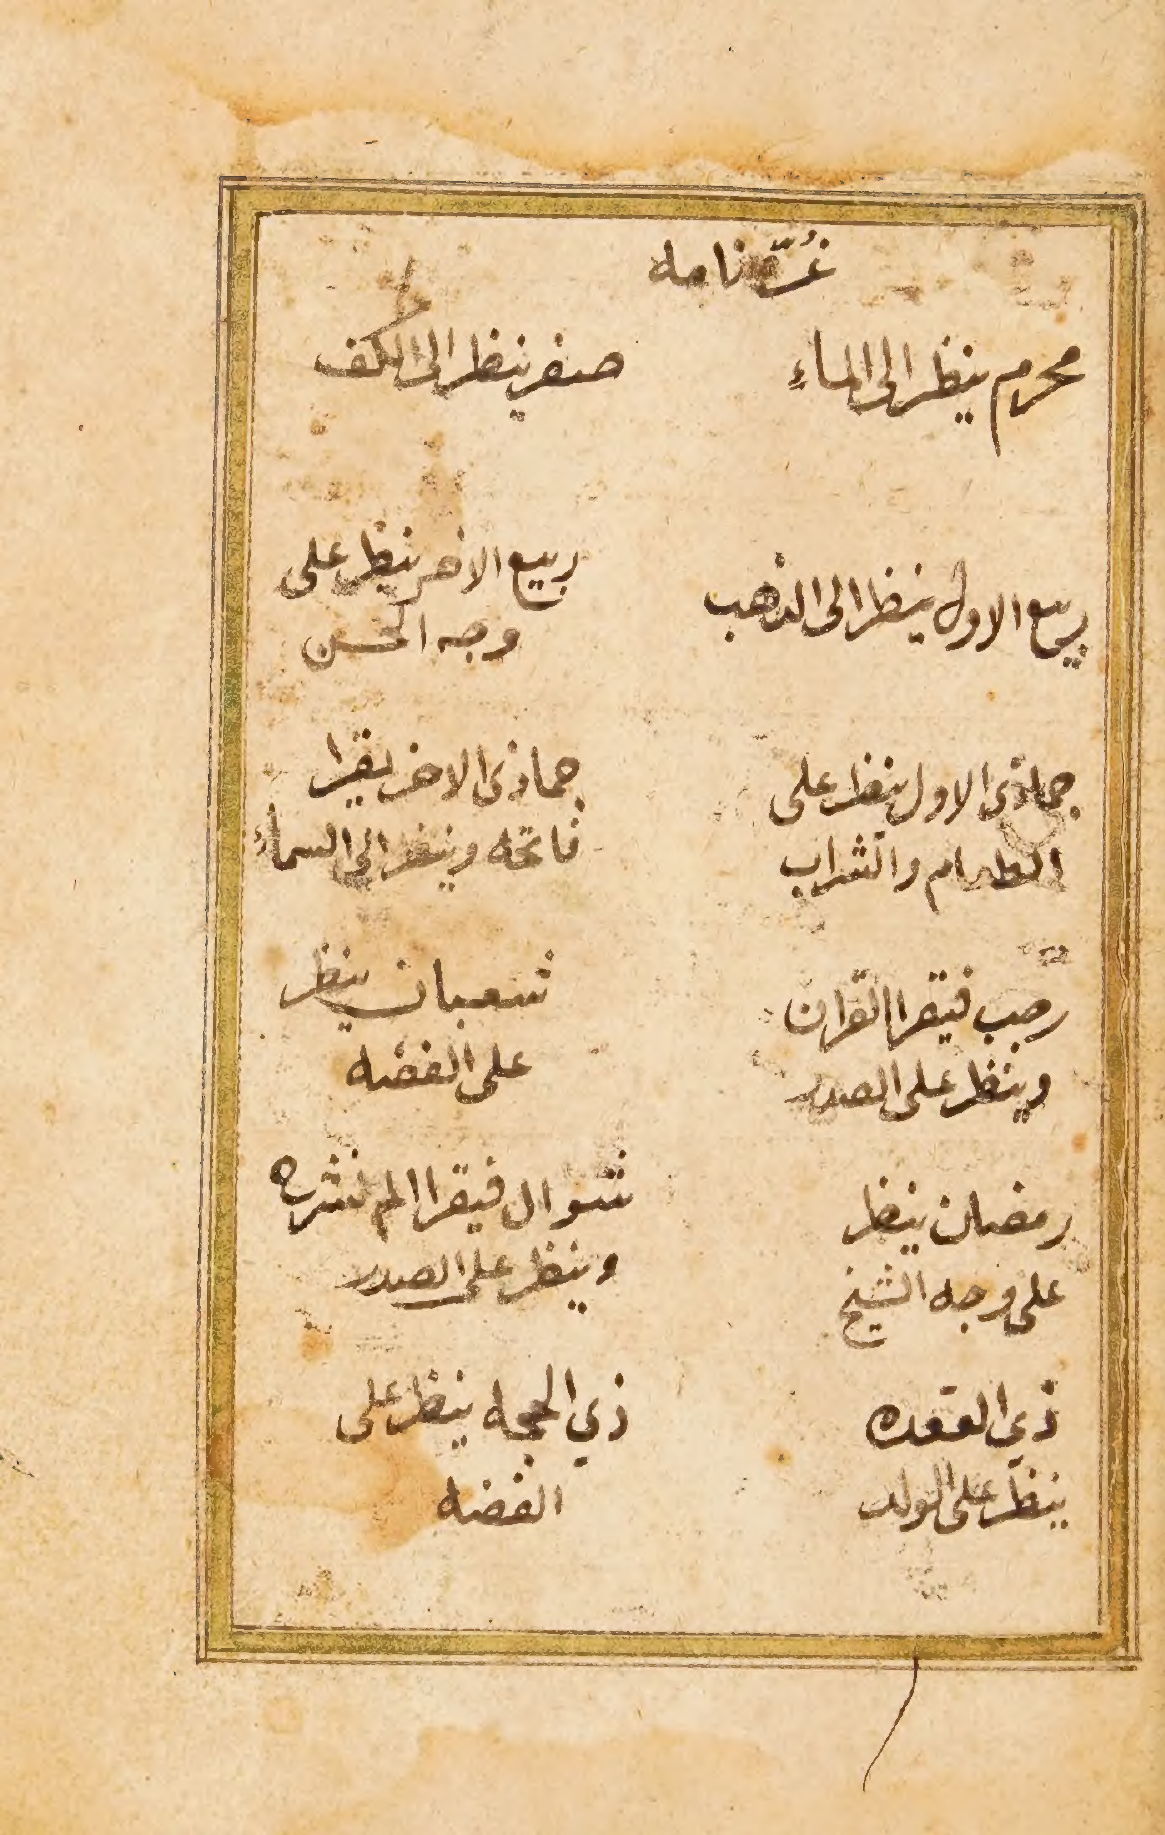 غرّه نامه
محرم ينظر الى الماءِ
صفر ينظر الى الكف
ربيع الاول ينظر الى الذهب
ربيع الاخر ينظر على
وجه الحسن
جماذى الاول ينظر على
الطعام والشراب
جماذى الاخر يقرا
فاتحه وينظر الى السماء
رجب فيقرا القران
وينظر على الصدر
شعبان ينظر
على الفضه
رمضان ينظر
على وجه الشيخ
شوال فيقرا الم نشرح
وينظر على الصدر
ذي القعده
ينظر على الولد
ذي الحجه ينظر على
الفضه